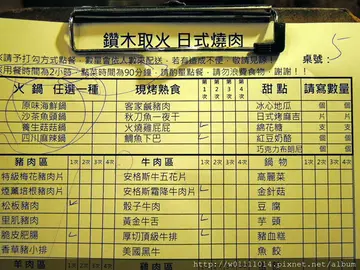 鑽木取火 日式燒肉
桌號: 5
用餐時間為2小時,點菜時間為90分鐘,請酌量點餐,請勿浪費食物,謝謝!!
火鍋 任選一種 現烤熟食 第1次 第2次 第3次 第4次 甜點 請寫數量
原味海鮮鍋 客家鹹豬肉 冰心地瓜 個
沙茶魚頭鍋 秋刀魚一夜干 日式烤麻吉 片
養生菇菇鍋 火燒雞屁屁 綿花糖 支
四川麻辣鍋 鯛魚下巴 紅豆奶酪 個
巧克力布朗尼
豬肉區 1次 2次 3次 4次 牛肉區 1次 2次 3次 4次 鍋物
特級梅花豬肉片 安格斯牛五花片 高麗菜
煙薰培根豬肉片 安格斯霜降牛肉片 金針菇
松板豬肉 骰子牛肉 豆腐
里肌豬肉 黃金牛舌 芋頭
脆皮肥腸 厚切頂級牛排 豬血糕
香草豬小排 美國黑牛 魚餃
http://w01111014.pixnet.net/album